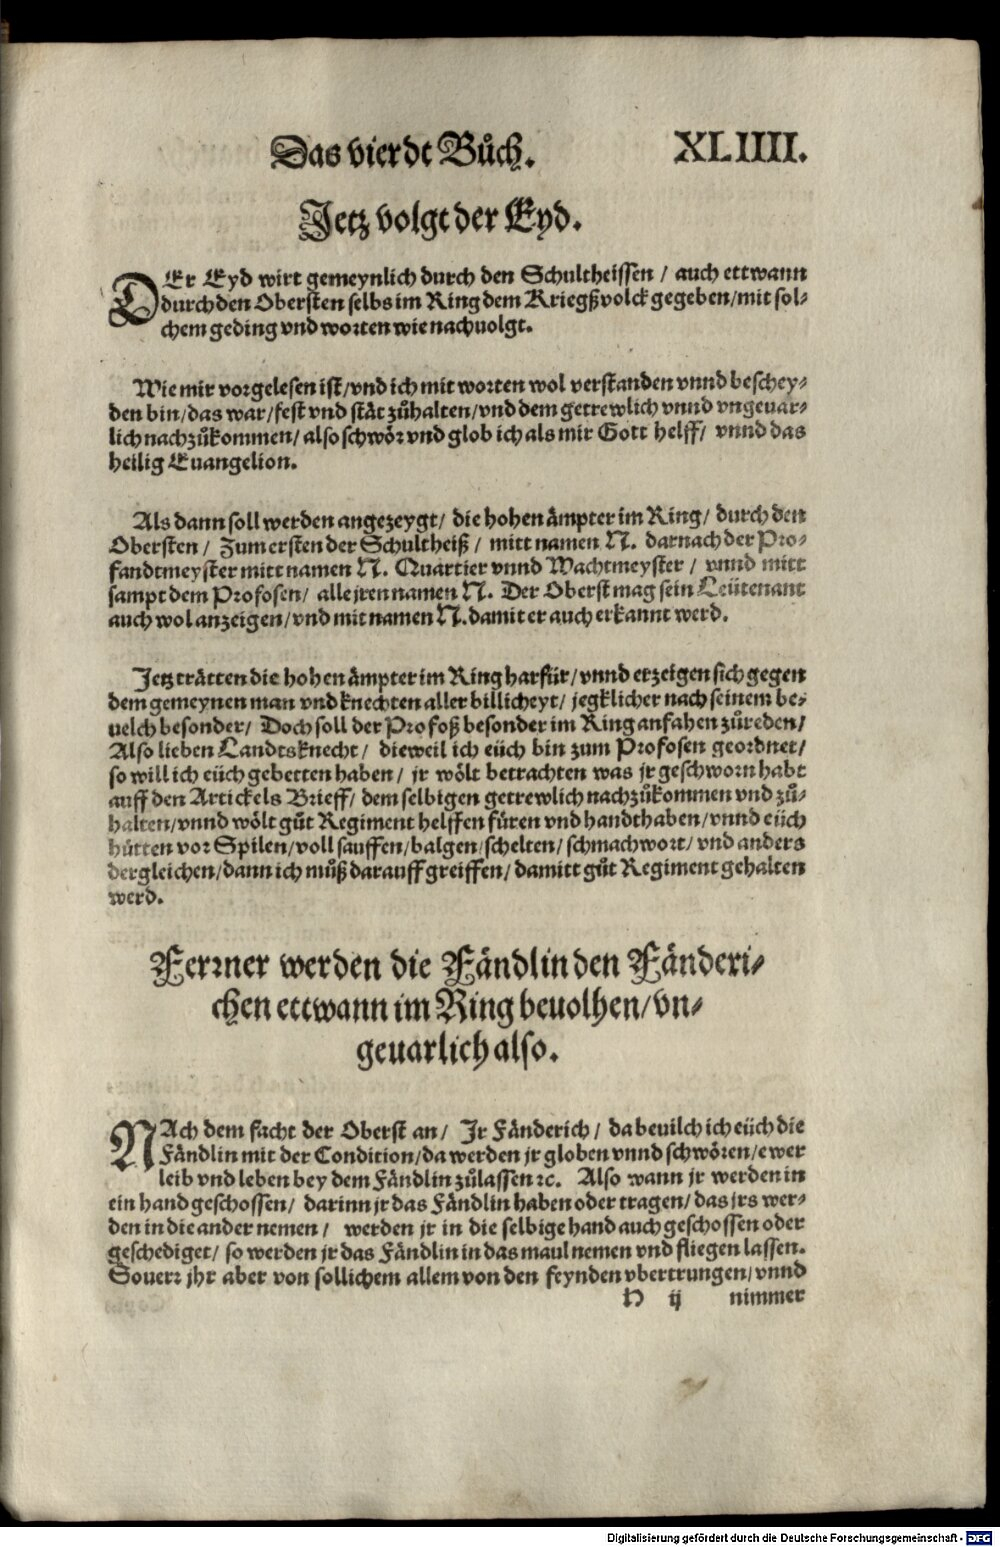 Das vierdt Bůch. XLIIII.
Jetz volgt der Eyd.
DEr Eyd wirt gemeynlich durch den Schultheissen / auch ettwann
durch den Obersten selbs im Ring dem Kriegßvolck gegeben/mit sol-
chem geding vnd worten wie nachuolgt.
Wie mir vorgelesen ist/vnd ich mit worten wol verstanden vnnd beschey-
den bin/das war/fest vnd stät zůhalten/vnd dem getrewlich vnnd vngeuar-
lich nachzůkommen/ also schwör vnd glob ich als mir Gott helff/ vnnd das
heilig Euangelion.
Als dann soll werden angezeygt/ die hohen ämpter im Ring/ durch den
Obersten / Zum ersten der Schultheiß / mitt namen N. darnach der Pro-
fandtmeyster mitt namen N. Quartier vnnd Wachtmeyster / vnnd mitt
sampt dem Profosen/ alle jren namen N. Der Oberst mag sein Leütenant
auch wol anzeigen/vnd mit namen N. damit er auch erkannt werd.
Jetz trätten die hohen ämpter im Ring harfür/vnnd erzeigen sich gegen
dem gemeynen man vnd knechten aller billicheyt/ jegklicher nach seinem be-
uelch besonder/ Doch soll der Profoß besonder im Ring anfahen zůreden/
Also lieben Landtsknecht/ dieweil ich eüch bin zum Profosen geordnet/
so will ich eüch gebetten haben/ jr wölt betrachten was jr geschworn habt
auff den Artickels Brieff/ dem selbigen getrewlich nachzůkommen vnd zů-
halten/vnnd wölt gůt Regiment helffen füren vnd handthaben/vnnd eüch
hütten vor Spilen/voll sauffen/balgen/schelten/schmachwort/vnd anders
dergleichen/dann ich můß darauff greiffen/damitt gůt Regiment gehalten
werd.
Ferrner werden die Fändlin den Fänderi-
chen ettwann im Ring beuolhen/vn-
geuarlich also.
NAch dem facht der Oberst an/ Jr Fänderich / da beuilch ich eüch die
Fändlin mit der Condition/da werden jr globen vnnd schwören/ewer
leib vnd leben bey dem Fändlin zůlassen ꝛc. Also wann jr werden in
ein hand geschossen/ darinn jr das Fändlin haben oder tragen/das jrs wer-
den in die ander nemen / werden jr in die selbige hand auch geschossen oder
geschediget/ so werden jr das Fändlin in das maul nemen vnd fliegen lassen.
Souerr jhr aber von sollichem allem von den feynden vbertrungen/vnnd
H ij nimmer
Digitalisierung gefördert durch die Deutsche Forschungsgemeinschaft - DFG